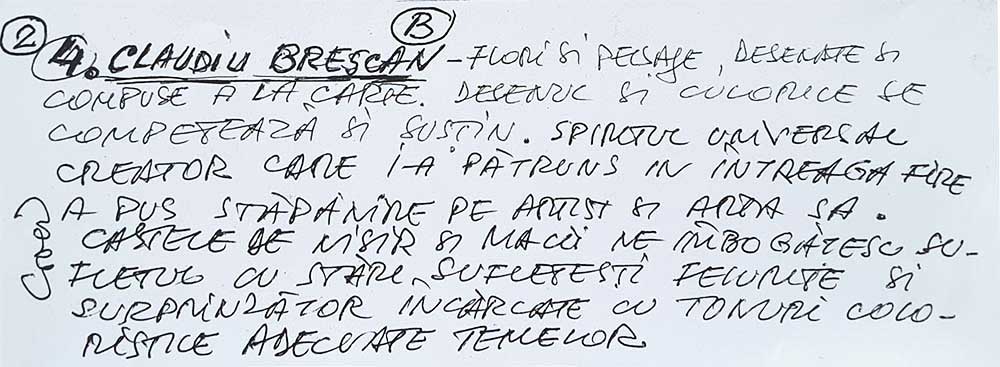 2 B
4. CLAUDIU BREȘCAN - FLORI SI PEISAJE, DESENATE SI
COMPUSE A LA CARTE. DESENUL SI CULORILE SE
COMPETEAZA SI SUSTIN. SPIRITUL UNIVERSAL
CREATOR CARE I-A PĂTRUNS IN INTREAGA FIRE
A PUS STĂPÂNIRE PE ARTIST SI ARTA SA.
CASTELE DE NISIP SI MACII NE IMBOGĂȚESC SU-
FLETUL CU STĂRI SUFLETEȘTI FELURITE SI
SURPRINZĂTOR INCARCATE CU TONURI COLO-
RISTICE ADECVATE TEMELOR